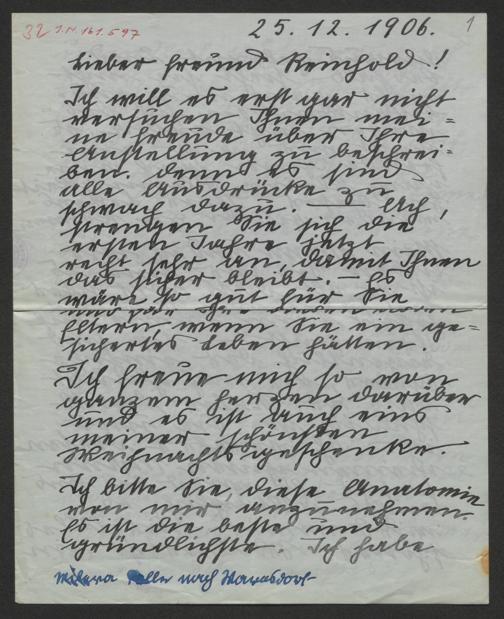 32 I.N. 161.597
25. 12. 1906.
1
Lieber Freund Reinhold!
Ich will es erst gar nicht
versuchen Ihnen mei=
ne Freude über Ihre
Anstellung zu beschrei=
ben. Denn es sind
alle Ausdrücke zu
schwach dazu. — Ach,
strengen Sie sich die
ersten Jahre jetzt
recht sehr an, damit Ihnen
das sicher bleibt. — Es
wäre so gut für Sie
und für Ihre
Eltern, wenn Sie ein ge=
sichertes Leben hätten.
Ich freue mich so von
ganzem Herzen darüber
und es ist auch eins
meiner schönsten
Weihnachtsgeschenke.
Ich bitte Sie, diese Anatomie
von mir anzunehmen.
Es ist die beste und
gründlichste. Ich habe
nach Warnsdorf